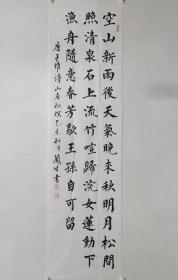 空山新雨後天氣晚來秋明月松間
照清泉石上流竹喧歸浣女蓮動下
漁舟隨意春芳歇王孫自可留
唐王維詩山居秋暝 書